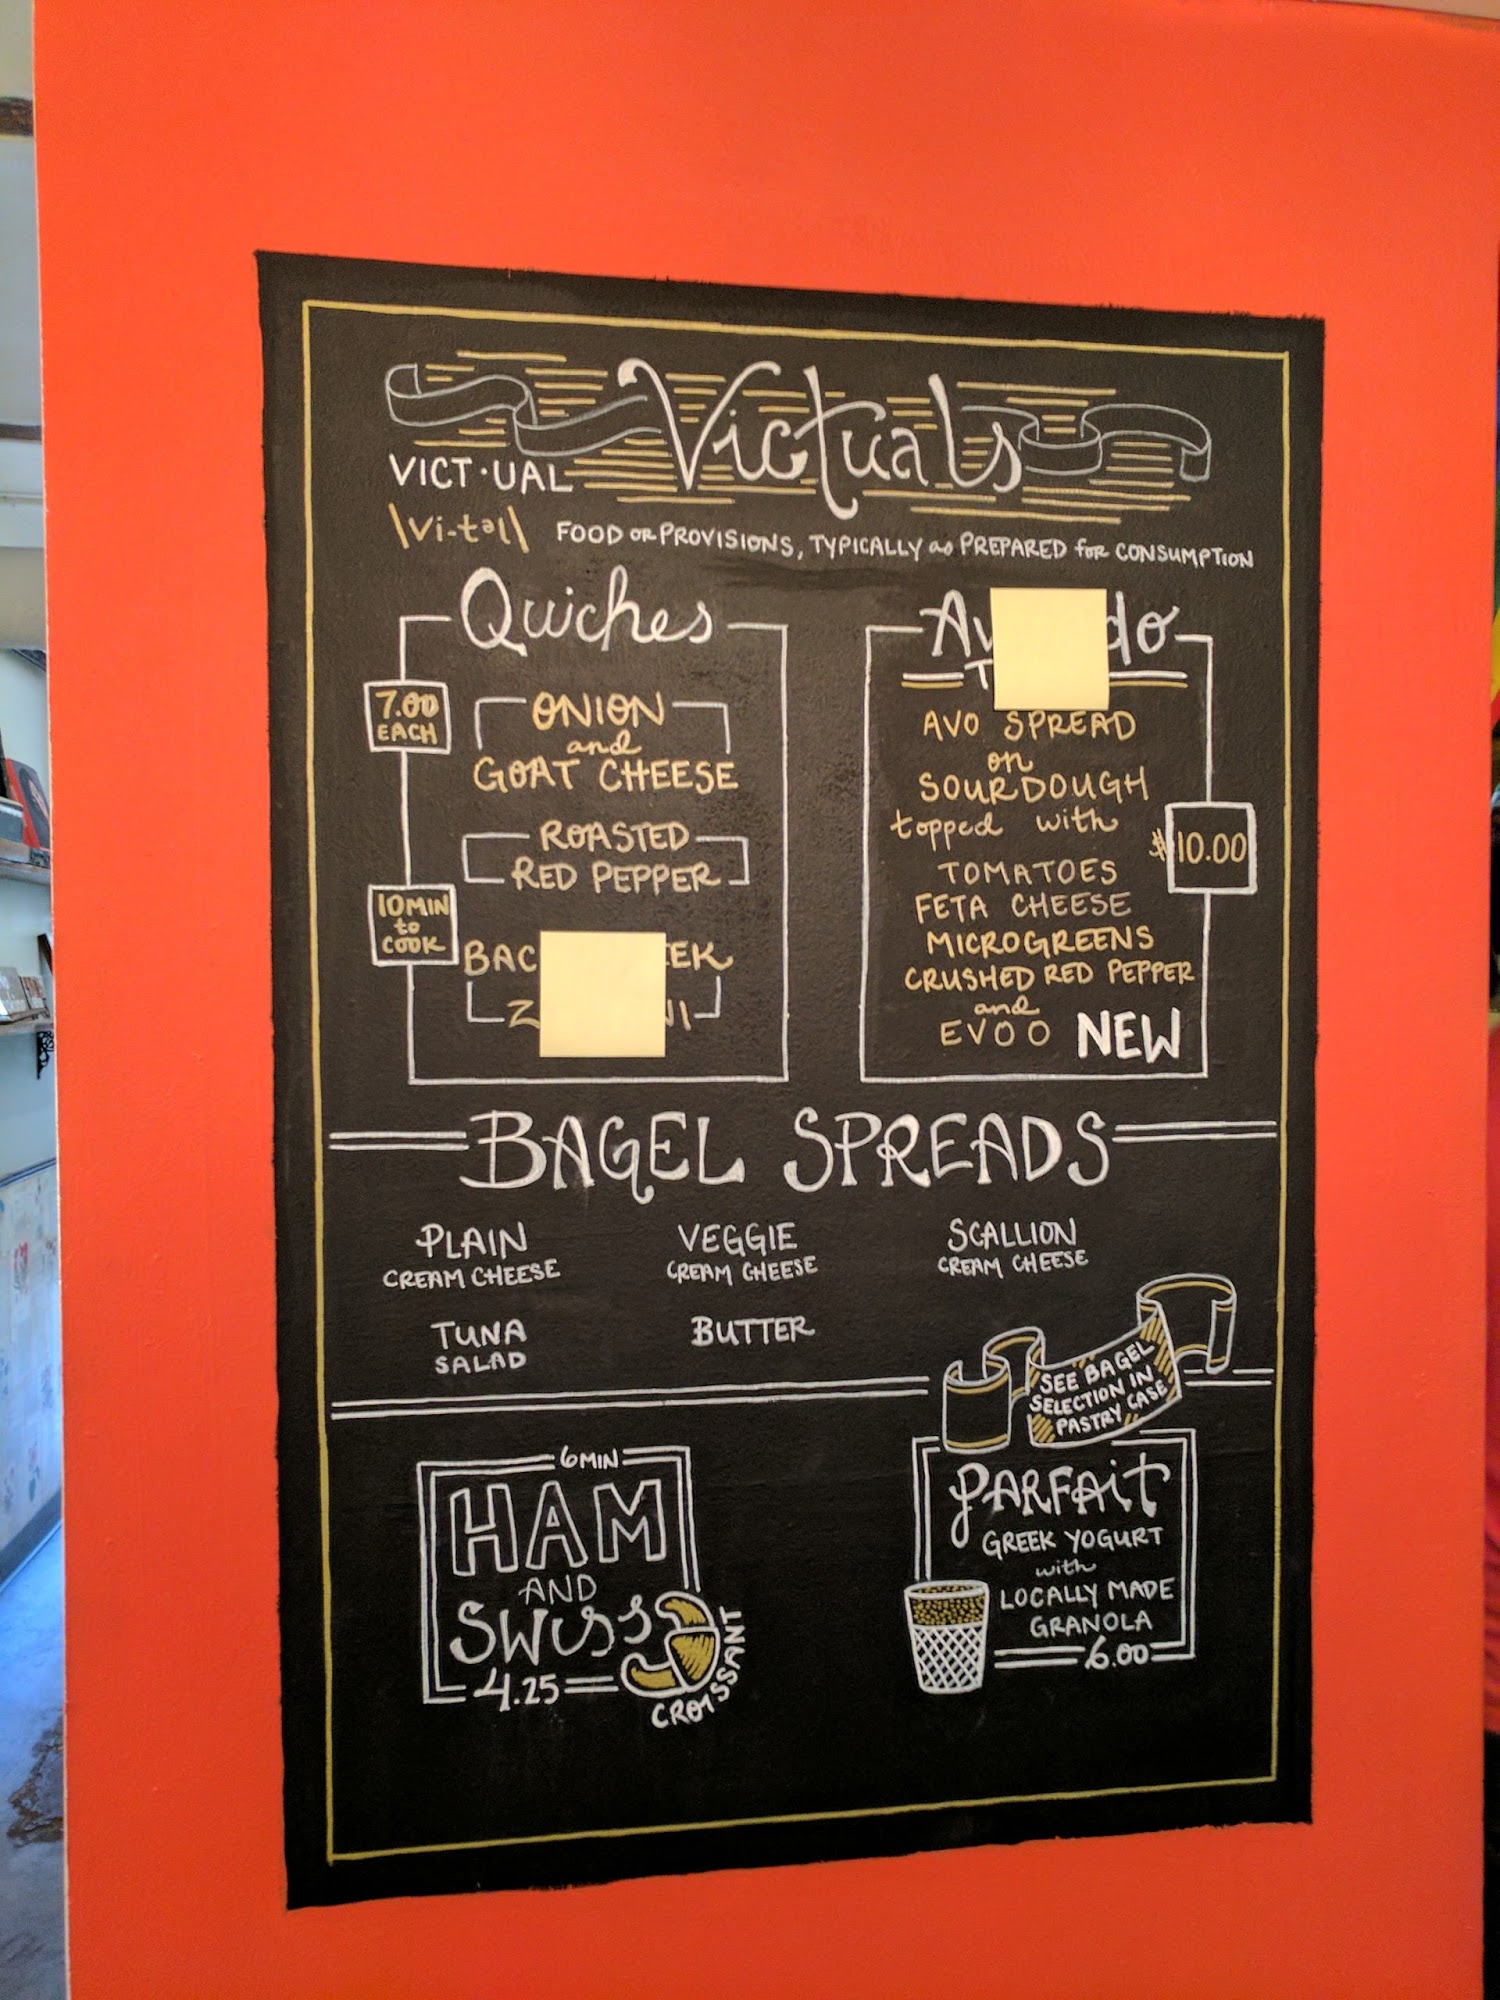 Victuals
VICT·UAL
\Vi-təl\ FOOD or PROVISIONS, TYPICALLY as PREPARED for CONSUMPTION
Quiches
7.00
EACH
ONION
and
GOAT CHEESE
ROASTED
RED PEPPER
10 MIN
to
COOK
AVO SPREAD
on
SOURDOUGH
topped with
TOMATOES
FETA CHEESE
MICROGREENS
CRUSHED RED PEPPER
and
EVOO NEW
$10.00
BAGEL SPREADS
PLAIN
CREAM CHEESE
VEGGIE
CREAM CHEESE
SCALLION
CREAM CHEESE
TUNA
SALAD
BUTTER
SEE BAGEL
SELECTION IN
PASTRY CASE
6 MIN
HAM
AND
SWISS
4.25
CROISSANT
PARFAIT
GREEK YOGURT
with
LOCALLY MADE
GRANOLA
6.00